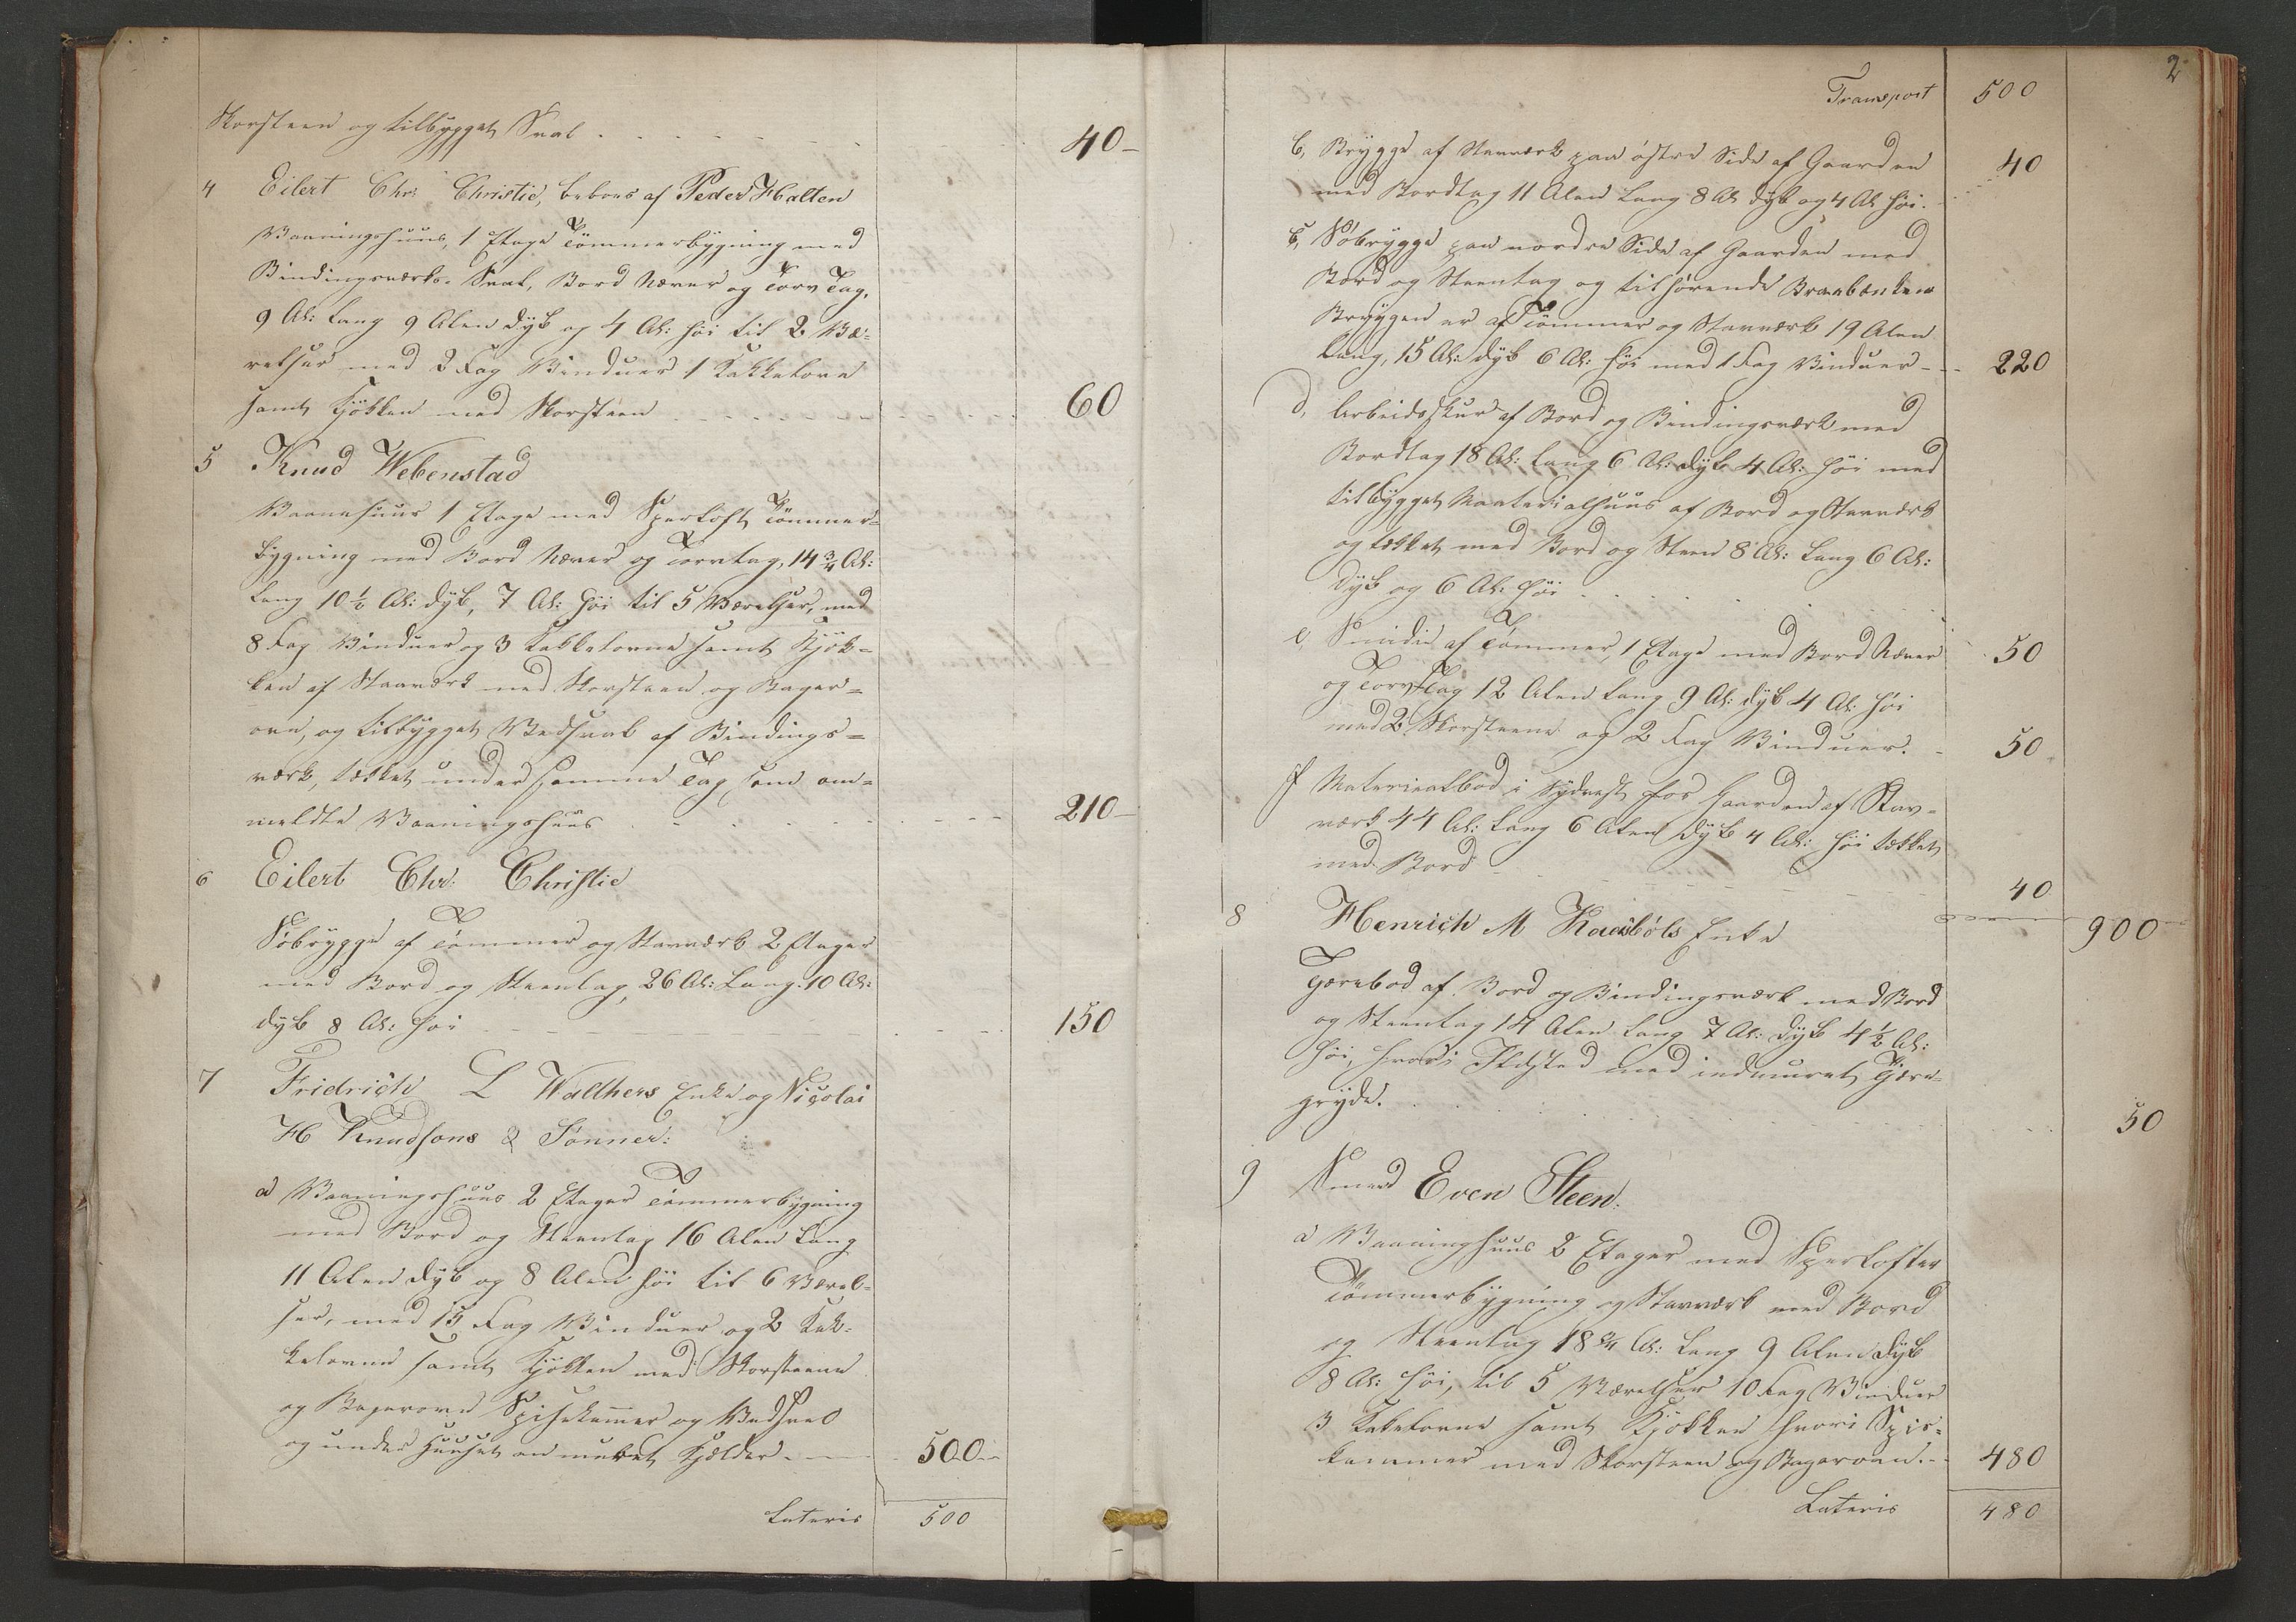 Skorsteen og tilbygget Sval . . . . . 40-
4 Eilert Chr: Christie, beboes af Peder Halten
Vaaningshuus, 1 Etage Tömmerbygning med
Bindingsværks-Sval, Bord Næver og Torv Tag,
9 Al: lang 9 Alen dyb og 4 Al: høi til 2 Væ-
relser med 3 Fag Vinduer 1 Kakkelovn
samt Kjökken med Skorsteen 60
5 Knud Webenstad
Vaanehuus 1 Etage med Sperloft Tömmer-
bygning med Bord Næver og Torvtag, 14 3/4 Al:
lang 10 1/2 Al: dyb, 7 Al: høi til 5 Værelser, med
8 Fag Vinduer og 3 Kakkelovne samt Kjök-
ken af Stavværk med Skorsteen og Bager-
ovn, og tilbygget Vedsval af Bindings-
værk, tækket under samme Tag som om-
meldte Vaaningshuus 210-
6 Eilert Chr: Christie
Söbrygge af Tömmer og Stavværk 2 Etager
med Bord og Steentag, 26 Al: Lang 10 Al:
dyb 8 Al: høi 150
7 Fridrich L Walthers Enke og Nicolai
H Knudsons & Sönner:
a Vaaningshuus 2 Etager Tömmerbygning
med Bord og Steentag 16 Alen Lang
11 Alen dyb og 8 Alen høi til 6 Værel-
ser, med 15 Fag Vinduer og 2 Kak-
kelovne samt Kjökken med Skorsteen
og Bagerovn Spisekammer og Vedsval
og under Huuset en muret Kjelder 500-
Lateris 500
2
Transport 500
b, Brygge af Stavværk paa östre Side af Gaarden
med Bordtag 11 Alen Lang 8 Al dyb og 4 Al høi. 40
Söbrygge paa nordre Side af Gaarden med
Bord og Steentag og tilhörende Braabænken
Bryggen er af Tömmer og Stavværk 19 Alen
lang, 15 Al: dyb 6 Al: høi med 1 Fag Vinduer 220
d, Arbeidsskur af Bord og Bindingsværk med
Bordtag 18 Al: lang 6 Al: dyb 4 Al: høi med
tilbygget Materialhuus af Bord og Stavværk
og tækket med Bord og Steen 8 Al: lang 6 Al:
dyb og 6 Al: høi 50
e, Smidie af Tömmer, 1 Etage med Bord Næver
og Torv Tag 12 Alen lang 9 Al: dyb 4 Al: høi
med 2 Skorstene og 2 Fag Vinduer. 50
f Materialbod i Sydvest for Gaarden af Stav-
værk 44 Al: lang 6 Alen dyb 4 Al: høi tækket
med Bord 40
900
8 Henrich M Enke
Tjærebod af Bord og Bindingsværk med Bord
og Steentag 14 Alen lang 7 Al: dyb 4 1/2 Al:
høi, hvori Ildsted med indmuret Tjære-
gryde. 50
9 Smed Even Steen:
a Vaaninghuus 2 Etager med Sperlofter
Tömmerbygning og Stavværk med Bord
og Steentag 18 3/4 Al: lang 9 Alen dyb
8 Al: høi, til 5 Værelser 10 Fag Vinduer
3 Kakelovne samt Kjökken hvori Spis-
kammer med Skorsteen og Bagerovn. 480
Lateris 480